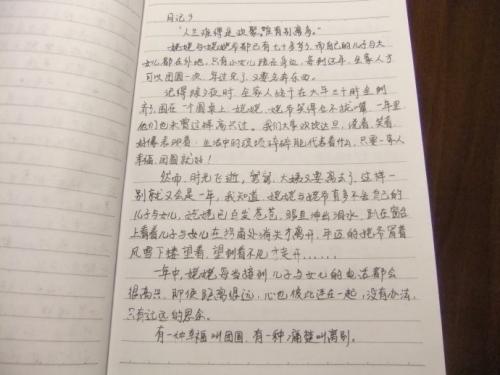 日记9
"人生难得是欢聚,唯有别离多。"
姥姥与姥爷都已有七十多岁,而自己的儿子与大
女儿都在外地,只有小女儿陪在身边,等到过年,全家人才
可以团圆一次,年过完了,又要各奔东西。
记得除夕夜时,全家人终于在大年三十时坐到
齐,围在一个圆桌上,姥姥、姥爷笑得合不拢嘴,一年里
他们也未曾这样高兴过。我们大家欢快达旦,说着,笑着
好像表明着:生活中的琐琐碎碎能代表着什么,只要一家人
幸福、团圆就好!
然而,时光飞逝,舅舅、大姨又要离去了,这样一
别就又会是一年,我知道,姥姥与姥爷有多不舍自己的
儿子与女儿,姥姥已白发苍苍,眼里冲出泪水,趴在窗台
上看着儿子与女儿在拐角处消失才离开,年迈的姥爷冒着
风雪下楼望着,望到看不见才走开……
一年中,姥姥每当接到儿子与女儿的电话都会
很高兴,即使距离很远,心也彼此连在一起,没有办法,
只有让远的思念。
有一种幸福叫团圆,有一种痛楚叫离别。